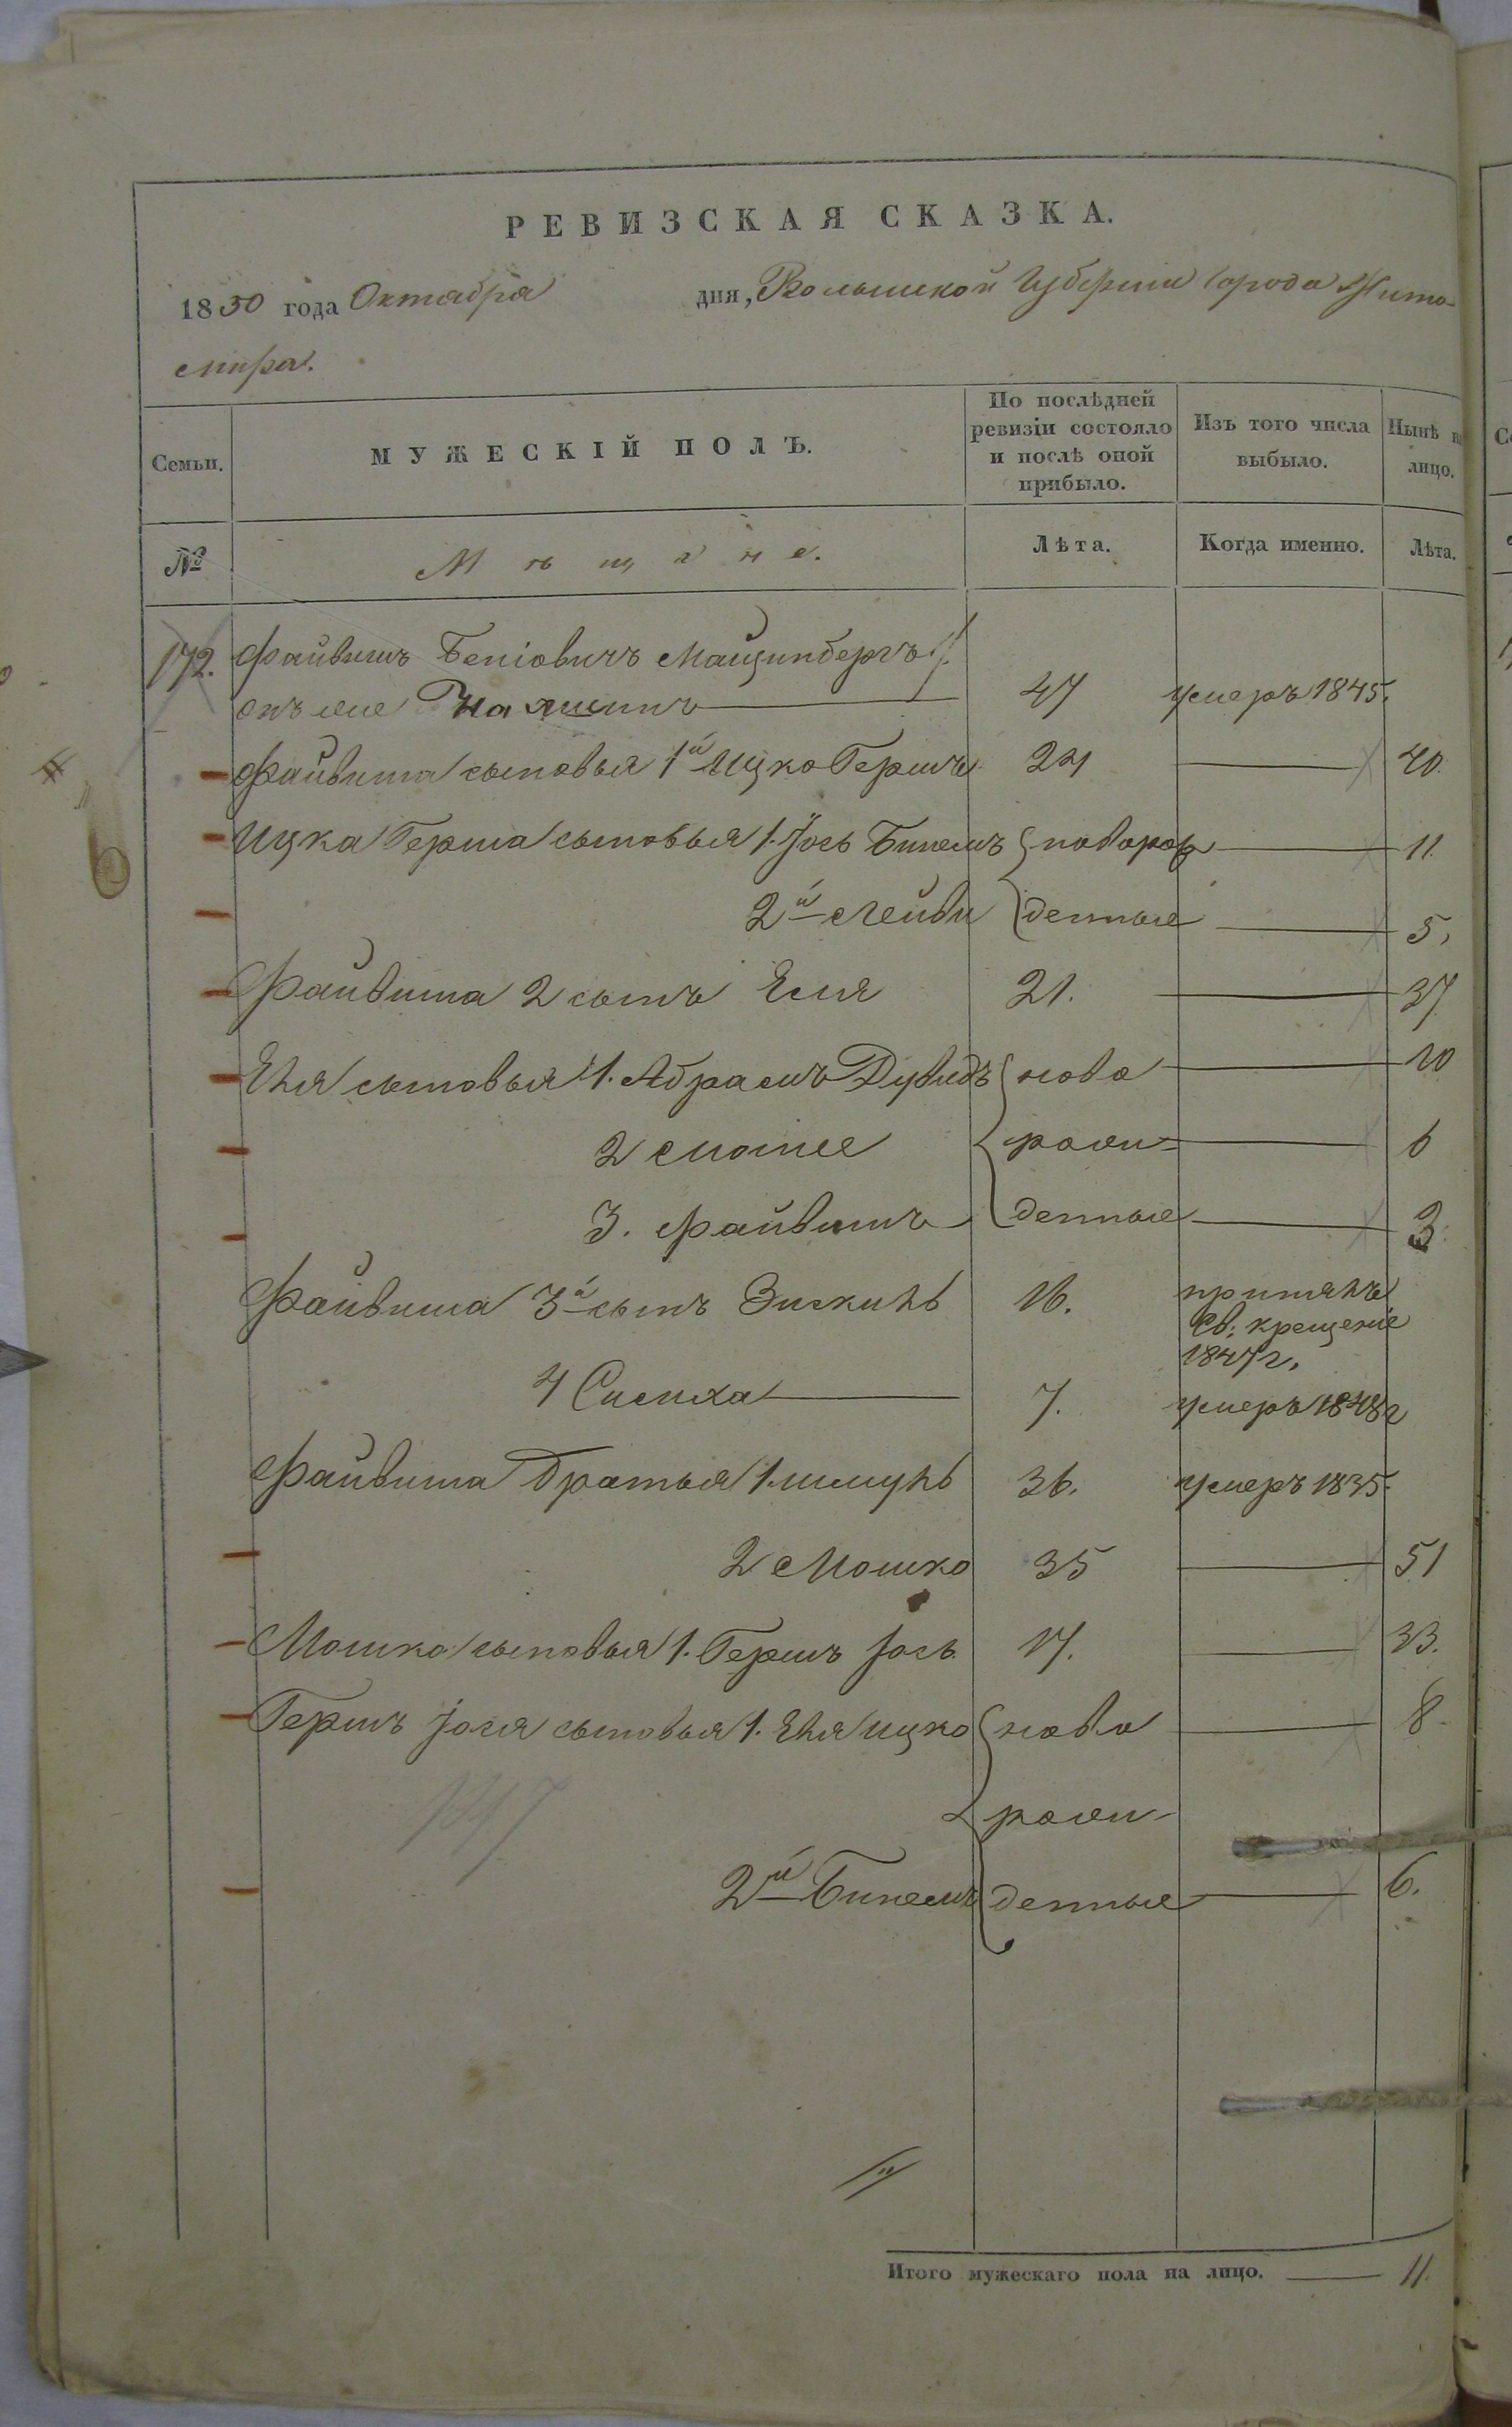 РЕВИЗСКАЯ СКАЗКА.
1850 года Октября дня, Волынской Губернии города Жито-
мира.
Семьи. МУЖЕСКІЙ ПОЛЪ. По послѣдней ревизіи состояло и послѣ оной прибыло. Изъ того числа выбыло. Нынѣ на лицо.
№ Мѣщане. Лѣта. Когда именно. Лѣта.
172. Файвишъ Беніовичъ Мащинбергъ
онъ же 47 умеръ 1845.
Файвиша сыновья 1й Ицко Гершъ 24 40.
Ицка Герша сыновья 1. Іось Бинемъ новорож 11.
2й Лейви денные 5.
Файвиша 2 сынъ Еля 21. 37
Еля сыновья 1. Абрамъ Дувидъ ново 10
2 Мотье рожи- 6
3. Файвишъ денные 3.
Файвиша 3й сынъ Зискинъ 16. принялъ
Св: крещеніе
1847 г.
4 Симха 7. умеръ 1848 г
Файвиша братья 1. Шмуль 36. умеръ 1835.
2 Мошко 35 51
Мошка сыновья 1. Гершъ Іось 17. 33.
Гершъ Іося сыновья 1. Еля Ицко ново 8
рожи-
2й Бинемъ денные 6.
Итого мужескаго пола на лицо. 11.